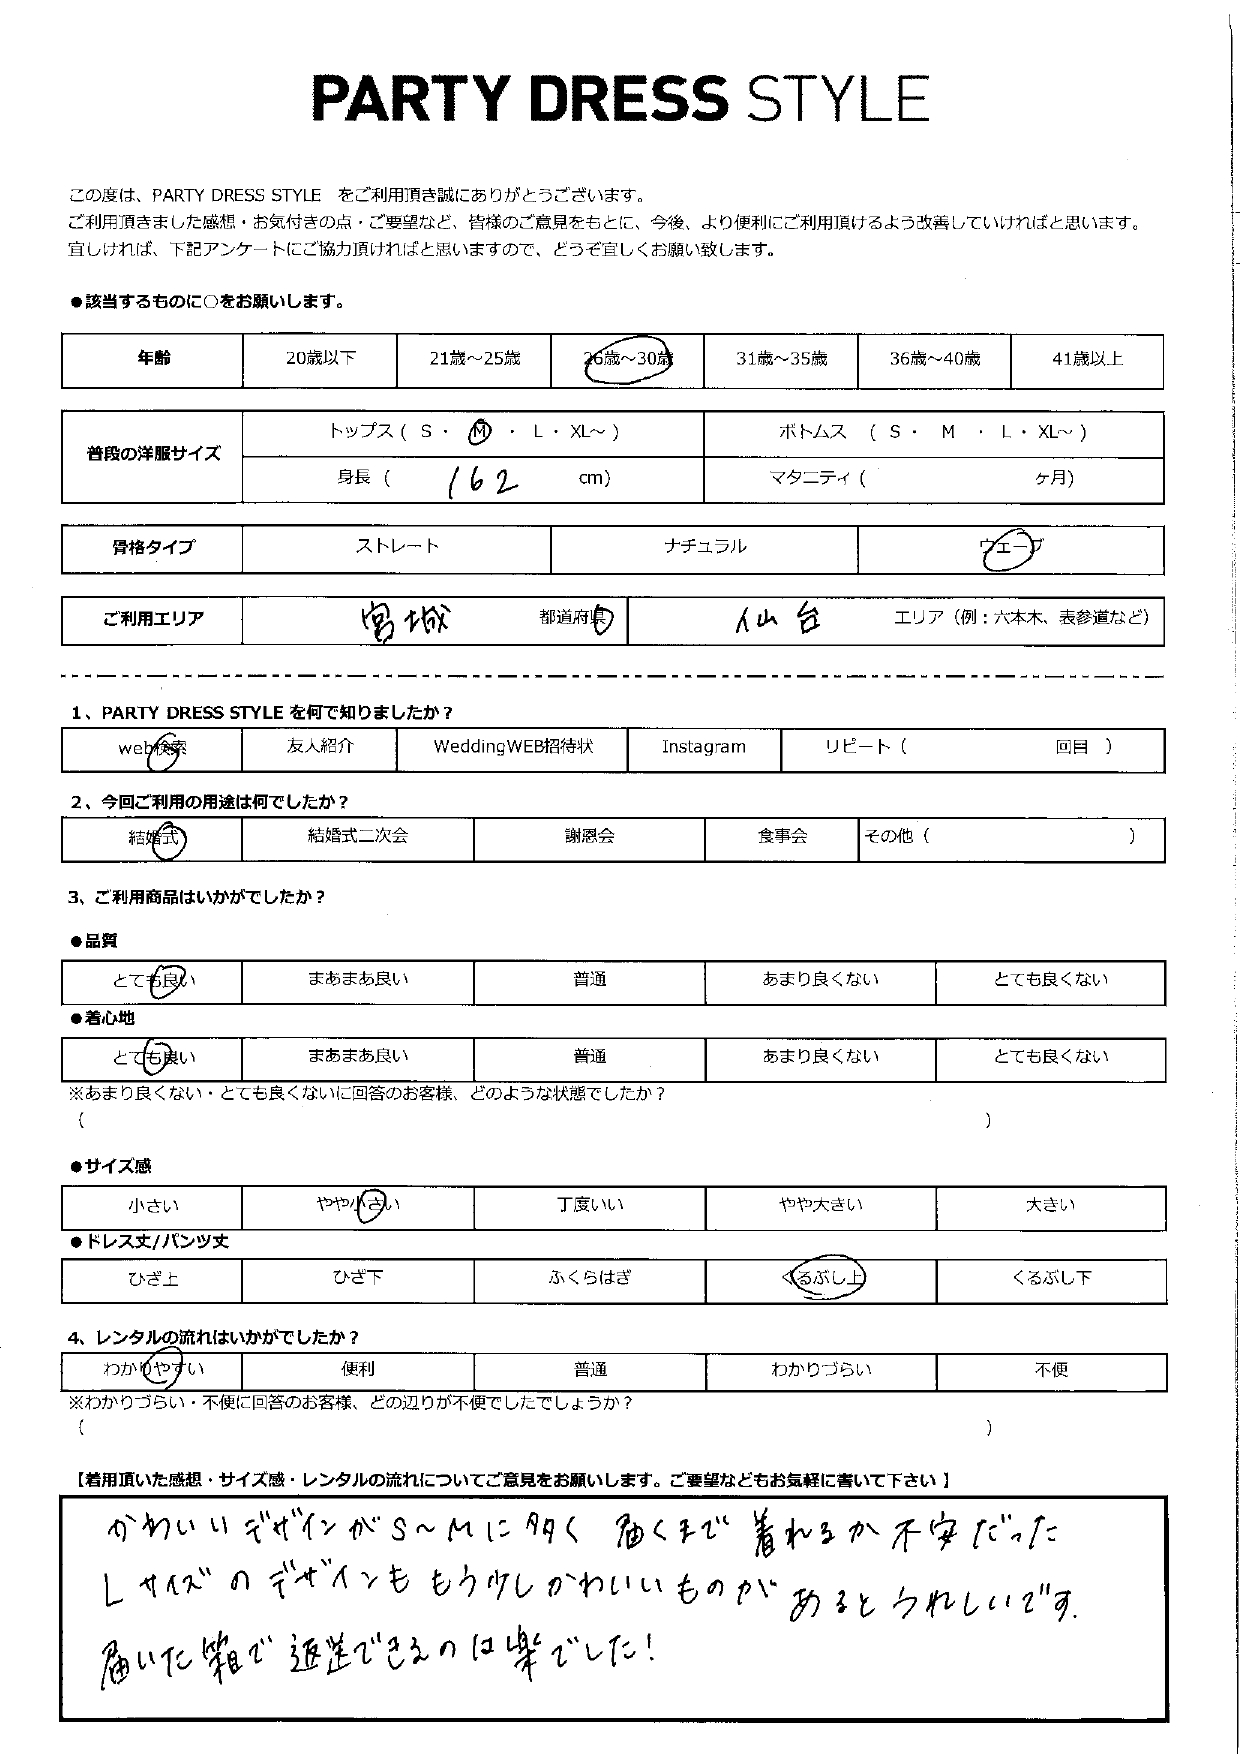 PARTY DRESS STYLE
この度は、PARTY DRESS STYLE をご利用頂き誠にありがとうございます。
ご利用頂きました感想・お気付きの点・ご要望など、皆様のご意見をもとに、今後、より便利にご利用頂けるよう改善していければと思います。
宜しければ、下記アンケートにご協力頂ければと思いますので、どうぞ宜しくお願い致します。
●該当するものに○をお願いします。
年齢 20歳以下 21歳～25歳 26歳～30歳 31歳～35歳 36歳～40歳 41歳以上
普段の洋服サイズ トップス ( S ・ M ・ L ・ XL～ ) ボトムス ( S ・ M ・ L ・ XL～ )
身長 ( 162 cm) マタニティ ( ヶ月)
骨格タイプ ストレート ナチュラル ウェーブ
ご利用エリア 宮城 都道府県 仙台 エリア（例：六本木、表参道など）
1、PARTY DRESS STYLE を何で知りましたか？
web検索 友人紹介 WeddingWEB招待状 Instagram リピート ( 回目 )
2、今回ご利用の用途は何でしたか？
結婚式 結婚式二次会 謝恩会 食事会 その他 ( )
3、ご利用商品はいかがでしたか？
●品質
とても良い まあまあ良い 普通 あまり良くない とても良くない
●着心地
とても良い まあまあ良い 普通 あまり良くない とても良くない
※あまり良くない・とても良くないに回答のお客様、どのような状態でしたか？
( )
●サイズ感
小さい やや小さい 丁度いい やや大きい 大きい
●ドレス丈/パンツ丈
ひざ上 ひざ下 ふくらはぎ くるぶし上 くるぶし下
4、レンタルの流れはいかがでしたか？
わかりやすい 便利 普通 わかりづらい 不便
※わかりづらい・不便に回答のお客様、どの辺りが不便でしたでしょうか？
( )
【着用頂いた感想・サイズ感・レンタルの流れについてご意見をお願いします。ご要望などもお気軽に書いて下さい 】
かわいいデザインがS～Mに多く 届くまで着れるか不安だった
Lサイズのデザインももう少しかわいいものがあるとうれしいです.
届いた箱で返送できるのは楽でした!